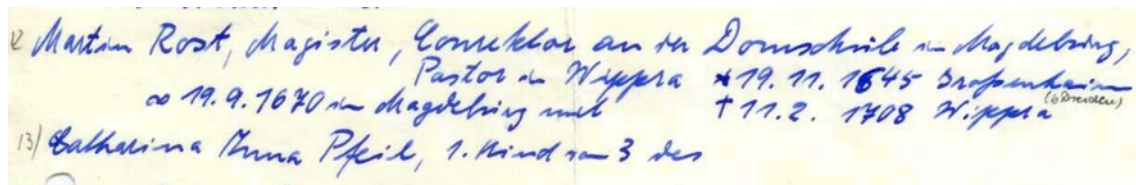 12 Martin Rost, Magister, Conrektor an der Domschule in Magdeburg,
Pastor in Wippra * 19.11.1645 Großenhain
(b Dresden)
∞ 19.9.1670 in Magdeburg mit † 11.2. 1708 Wippra
13) Catharina Anna Pfeil, 1. Kind von 3 des